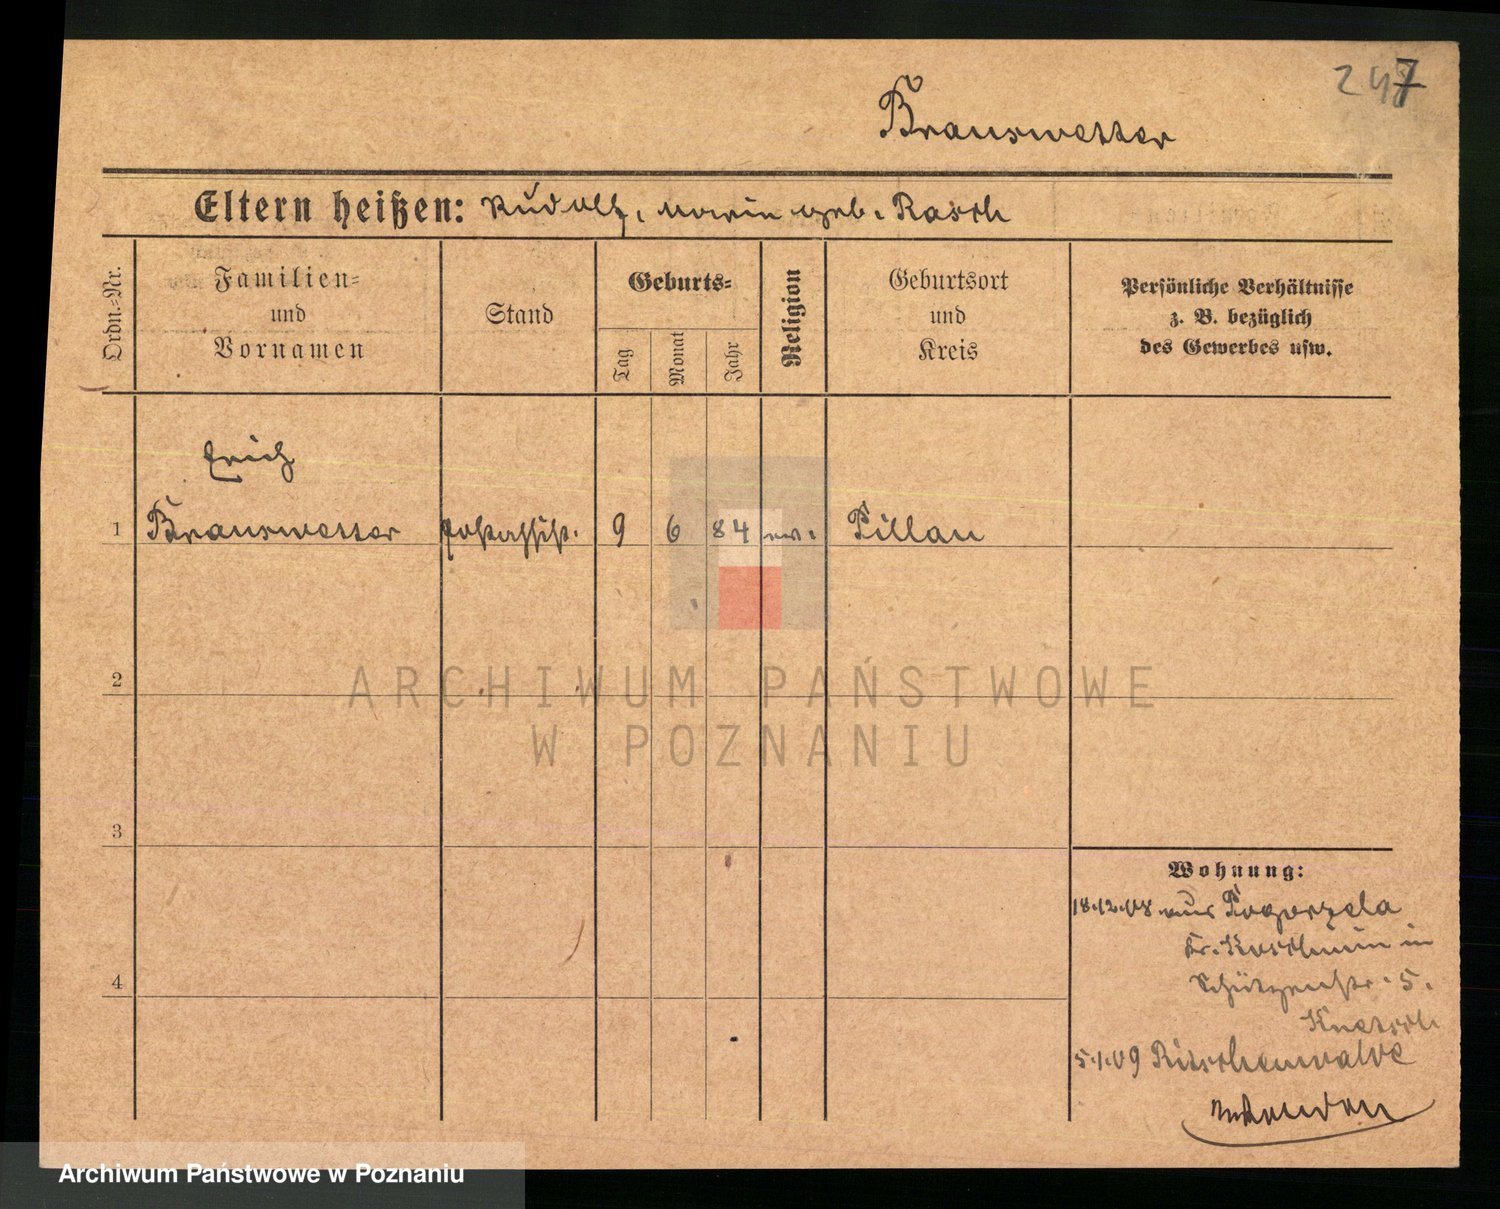 247
Brauswetter
Eltern heißen: Rudolf, Marie geb. Rasch
Ordn.=Nr.
Familien=
und
Vornamen
Stand
Geburts=
Tag
Monat
Jahr
Religion
Geburtsort
und
Kreis
Persönliche Verhältnisse
z. B. bezüglich
des Gewerbes usw.
Erich
1 Brauswetter Postassist. 9 6 84 ev. Pillau
2
3
4
Wohnung:
18.12.08 aus Pogorzela
Kr. Koschmin in
Schützenstr. 5.
5.1.09 Ritschenwalde
ARCHIWUM PAŃSTWOWE
W POZNANIU
Archiwum Państwowe w Poznaniu